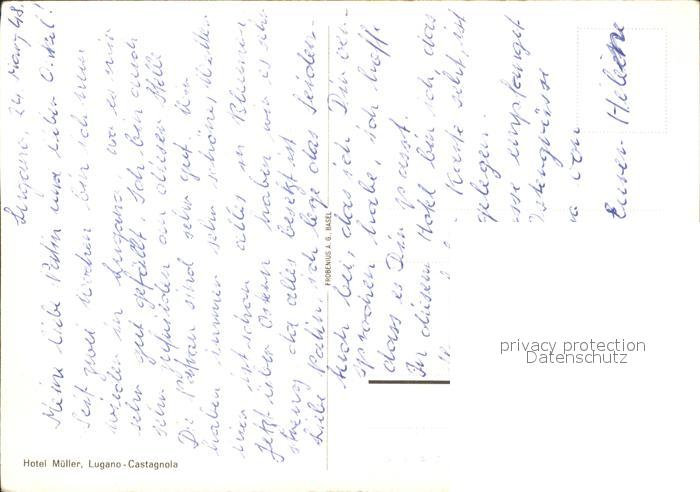 Lugano, 24 März 48.
Meine liebe Patin und lieber Onkel!
Seit zwei Wochen bin ich nun
wieder in Lugano, wo es mir
sehr gut gefällt. Ich bin auch
sehr zufrieden an dieser Stelle
Die sind sehr gut. Wir
haben immer sehr schönes Wetter
hier ist schon alles in Blumen,
Jetzt über Ostern haben wir es sehr
streng, da alles besetzt ist
Liebe Patin, ich lege das Seiden-
tuch bei, das ich Dir ver-
sprochen habe, ich hoffe
dass es Dir passt.
In diesem Hotel bin ich das
Karte seht, ist
gelegen.
sse empfanget
Ostergrüsse
von
Eurer Helene
FROBENIUS A.G. BASEL
Hotel Müller, Lugano-Castagnola
privacy protection
Datenschutz